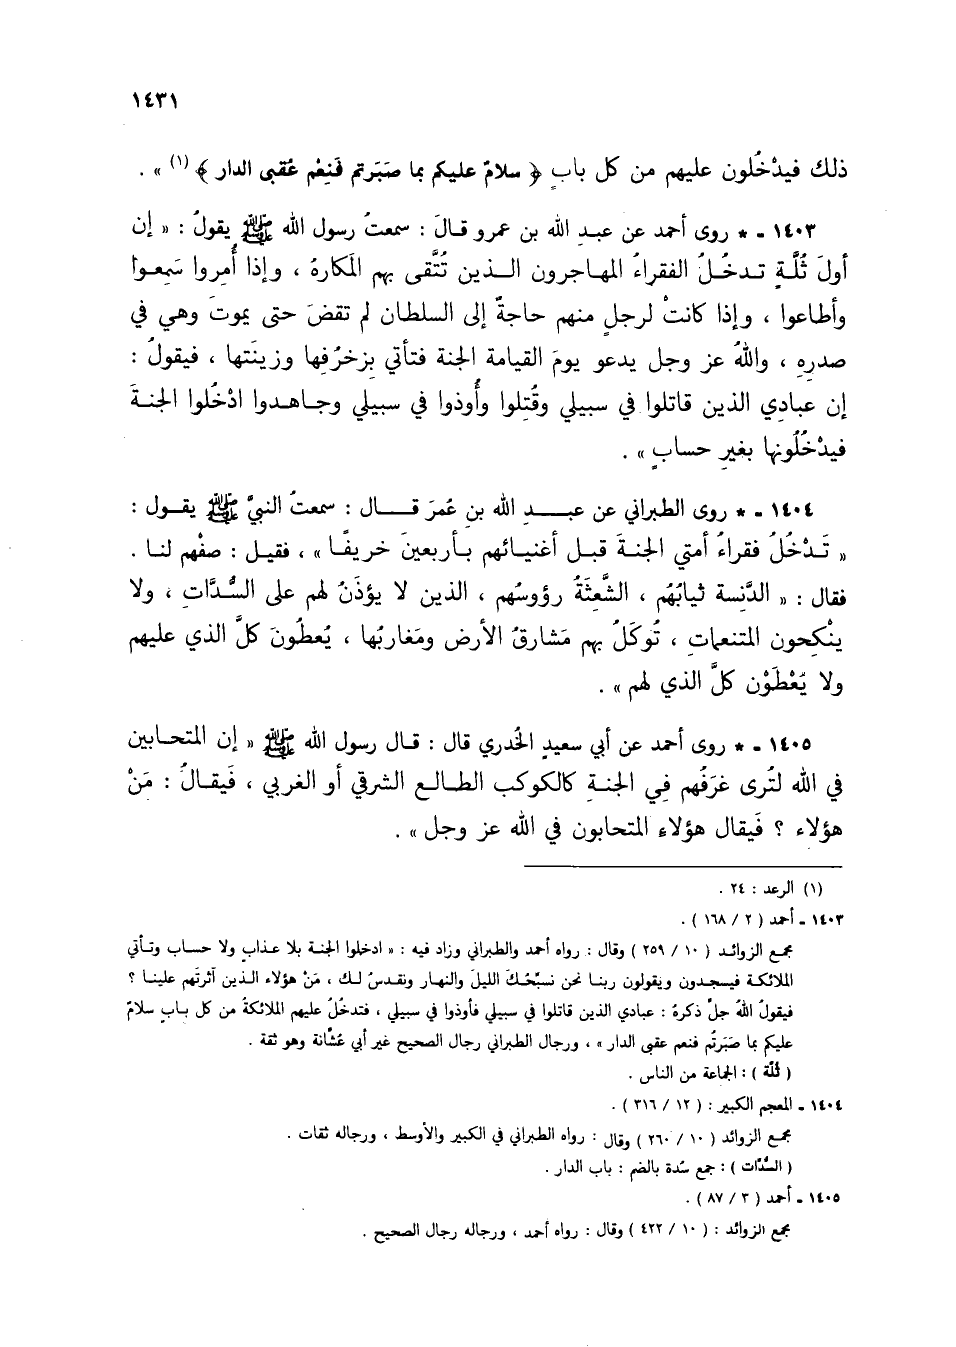 ١٤٣١
ذلك فيدْخُلون عليهم من كل بابٍ ﴿ سلامٌ عليكم بما صبَرتم فَنِعْم عُقبى الدار ﴾ (١) » .
١٤٠٣ - * روى أحمد عن عبدِ الله بن عمرو قالَ : سمعتُ رسول الله ﷺ يقولُ : « إن
أولَ ثُلَّةٍ تدخُلُ الفقراءُ المهاجرون الذين تُتَّقى بهم المَكارهُ ، وإذا أُمِروا سَمِعوا
وأطاعوا ، وإذا كانتْ لرجلٍ منهم حاجةٌ إلى السلطان لم تقضَ حتى يموتَ وهي في
صدرهِ ، واللهُ عز وجل يدعو يومَ القيامة الجنة فتأتي بزخرُفِها وزينَتها ، فيقولُ :
إن عبادِي الذين قاتلوا في سبيلي وقُتِلوا وأُوذوا في سبيلي وجاهدوا ادْخُلوا الجنةَ
فيدْخُلُونها بغيرِ حسابٍ » .
١٤٠٤ - * روى الطبراني عن عبد الله بنِ عُمرَ قال : سمعتُ النبيَّ ﷺ يقول :
« تَدْخُلُ فقراءُ أمتي الجنةَ قبل أغنيائهم بأربعينَ خريفًا » ، فقيل : صفْهم لنا .
فقال : « الدَّنِسة ثيابُهُم ، الشَّعِثَةُ رؤوسُهم ، الذين لا يؤذَنُ لهم على السُّدَّاتِ ، ولا
ينْكِحون المتنعماتِ ، تُوكَلُ بهم مَشارقُ الأرضِ ومَغاربُها ، يُعطُونَ كلَّ الذي عليهم
ولا يُعْطَوْن كلَّ الذي لهم » .
١٤٠٥ - * روى أحمد عن أبي سعيدٍ الخُدري قال : قال رسول الله ﷺ « إن المتحابين
في الله لتُرى غرَفُهم في الجنةِ كالكوكب الطالع الشرقي أو الغربي ، فَيقالُ : مَنْ
هؤلاء ؟ فَيقال هؤلاءِ المتحابون في الله عز وجل » .
(١) الرعد : ٢٤ .
١٤٠٣ - أحمد ( ٢ / ١٦٨ ) .
مجمع الزوائد ( ١٠ / ٢٥٩ ) وقال : رواه أحمد والطبراني وزاد فيه : « ادخلوا الجنة بلا عذابٍ ولا حساب وتأتي
الملائكة فيسجدون ويقولون ربنا نحن نسبِّحُكَ الليلَ والنهار ونقدسُ لك ، مَنْ هؤلاء الذين آثرتَهم علينا ؟
فيقولُ اللهُ جلّ ذكرهُ : عبادي الذين قاتلوا في سبيلي فأوذوا في سبيلي ، فتدخُلُ عليهم الملائكةُ من كل بابٍ سلامٌ
عليكم بما صَبَرتُم فنعم عقبى الدار » ، ورجال الطبراني رجال الصحيح غير أبي عُشّانة وهو ثقة .
( ثُلّة ) : الجماعة من الناس .
١٤٠٤ - المعجم الكبير : ( ١٢ / ٣١٦ ) .
مجمع الزوائد ( ١٠ / ٢٦٠ ) وقال : رواه الطبراني في الكبير والأوسط ، ورجاله ثقات .
( السُّدَّات ) : جمع سُدة بالضم : باب الدار .
١٤٠٥ - أحمد ( ٣ / ٨٧ ) .
مجمع الزوائد : ( ١٠ / ٤٢٢ ) وقال : رواه أحمد ، ورجاله رجال الصحيح .